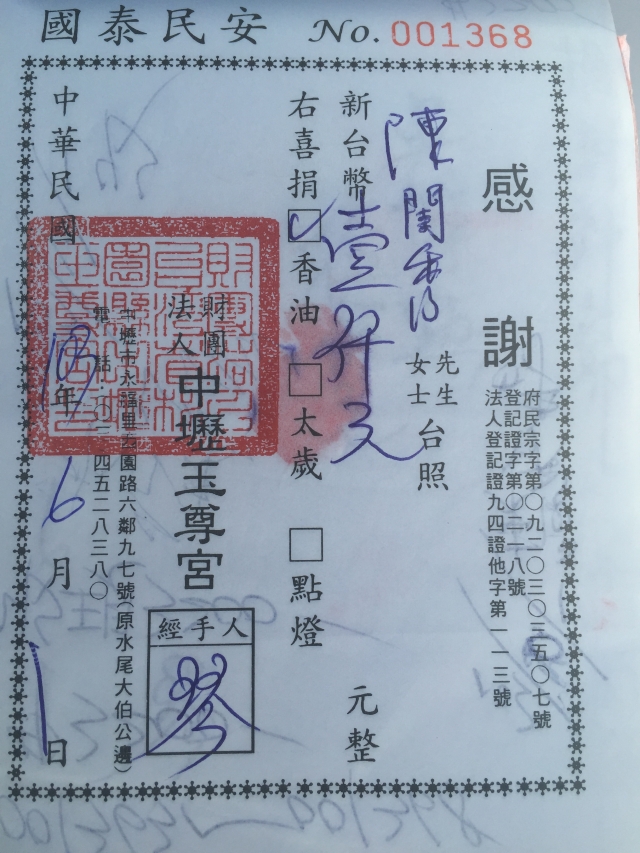 國泰民安
No. 001368
感謝
府民宗字第〇九二〇三〇三五〇七號
登記證字第〇二一八號
法人登記證九四證他字第一一三號
陳蘭香 先生女士台照
新台幣壹仟元 元整
右喜捐☑香油 □太歲 □點燈
財團法人中壢玉尊宮
經手人
琴
中壢市永福里大園路六鄰九七號(原水尾大伯公邊)
電話:〇三|四五二八三八〇
中華民國 年 6月 1日